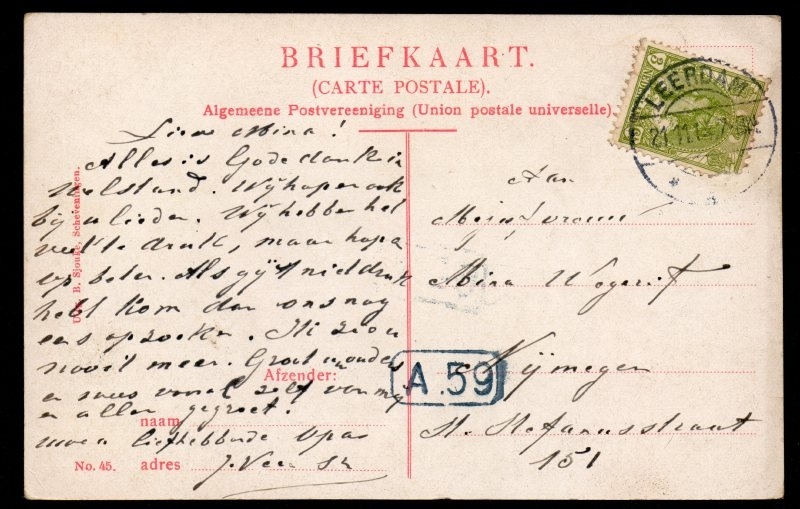 BRIEFKAART.
(CARTE POSTALE).
Algemeene Postvereeniging (Union postale universelle).
3
LEERDAM
21.11.
Lieve Mina!
Alles is Gode dank in
Welstand. Wij hopen ook
bij u lieden. Wij hebben het
veel te druk, maar hopen
op beter. Als gij 't niet druk
hebt kom dan ons nog
eens opzoeken. Ik zou
nooit meer. Groet uw ouders
en wees vooral zelf van mij
en allen gegroet!
uwen liefhebbende Opa
J. Veen Sr
Aan
Mejufvrouw
Mina Wegerif
Nijmegen
St. Stefanusstraat
151
A.59
Afzender:
naam
adres
No. 45.
Uitg. B. Sjouke, Scheveningen.